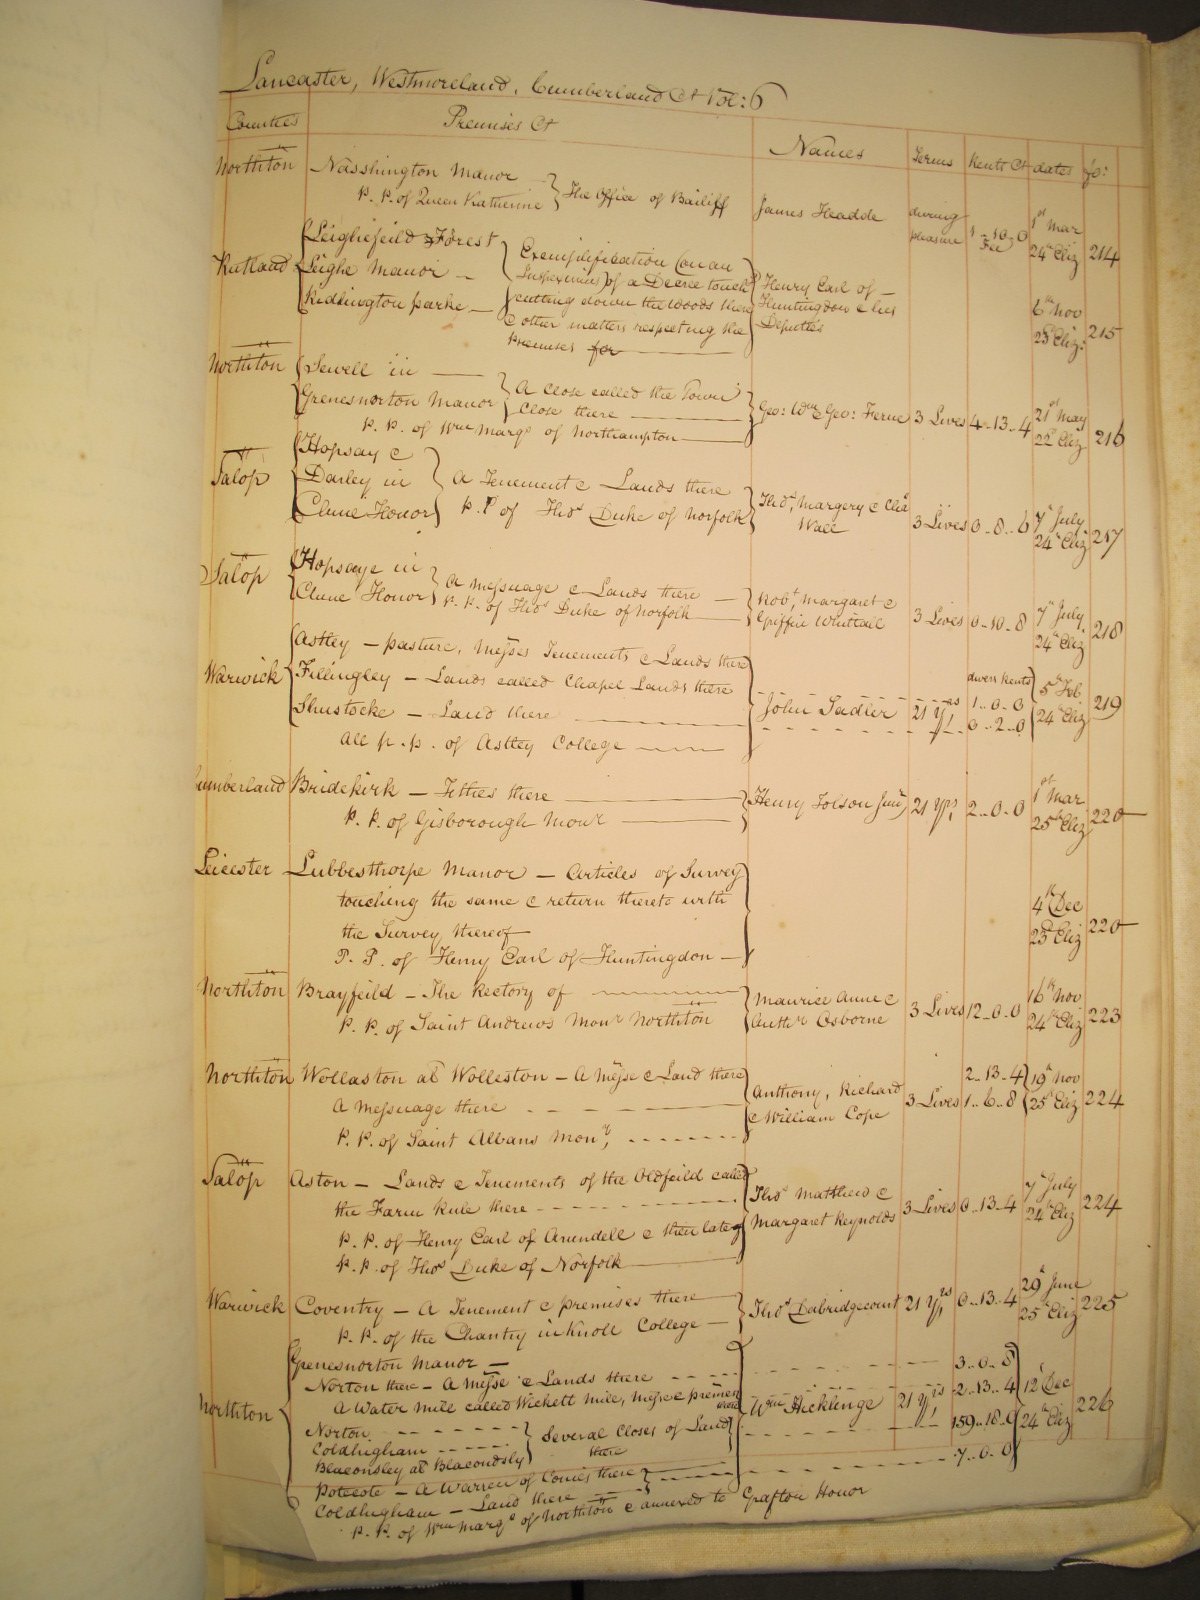 Lancaster, Westmoreland, Cumberland &c Vol: 6
Counties Premises &c Names Terms Rents &c dates fo:
Northton Nasshington Manor
p. p. of Queen Katherine } The Office of Bailiff James Headde during pleasure 1-10-0 Fee 1st Mar 24th Eliz 214
Rutland Leighefeild Forest
Leighe Manor
Riddlington parke
Exemplification (on an
Inspeximus) of a Decree touch
cutting down the woods there
& other matters respecting the
premises for
Henry Earl of
Huntingdon & his
Deputies
6th Nov
25th Eliz: 215
Northton Sewell in
Grenesnorton Manor
A Close called the Town
Close there
p. p. of Wm Marqs of Northampton
Geo: Wm & Geo: Ferne 3 Lives 4-13-4 21st May 22d Eliz 216
Salop Hopsay &
Darley in
Clune Honor
A Tenement & Lands there
p. p of Thos Duke of Norfolk
Thos, Margery &
Wall 3 Lives 0-8-6 7th July 24th Eliz 217
Salop Hopsaye in
Clune Honor
A Messuage & Lands there
p. p. of Thos Duke of Norfolk
Robt, Margaret &
Griffin Whittail 3 Lives 0-10-8 7th July 24th Eliz 218
Warwick Astley – pasture, Messes Tenements & Lands there
Fillingley – Lands called Chapel Lands there
Shustocke – Land there
all p. p. of Astley College
John Sadler 21 Yrs
divers Rents
1..0..0
0..2..0
5th Feb
24th Eliz 219
Cumberland Bridekirk – Tithes there
p. p. of Gisborough Monr
Henry Tolson Junr 21 Yrs 2..0..0 1st Mar 25th Eliz 220
Leicester Lubbesthorpe Manor – Articles of Survey
touching the same & return thereto with
the Survey thereof
P. P. of Henry Earl of Huntingdon
4th Dec
23d Eliz 220
Northton Brayfeild – The Rectory of
p. p. of Saint Andrews Monr Northton
Maurice Anne &
Authr Osborne 3 Lives 12-0-0 16th Nov 24th Eliz 223
Northton Wollaston al Wolleston – A Messe & Land there
A Messuage there
p. p. of Saint Albans Monr,
Anthony, Richard
& William Cope 3 Lives
2-13-4
1..6..8
19th Nov
25th Eliz 224
Salop Aston – Lands & Tenements of the Oldfeild called
the Farm Rule there
p. p. of Henry Earl of Arundell & then late
p. p. of Thos Duke of Norfolk
Thos Matthew &
Margaret Reynolds 3 Lives 0..13..4 7th July 24th Eliz 224
Warwick Coventry – A Tenement & premises there
p. p. of the Chantry in Knoll College
Thos Dabridgecourt 21 Yrs 0..13..4 29th June 25th Eliz 225
Northton Grenesnorton Manor
Norton there – A Messe & Lands there
A Water Mill called Wickett Mill, Messe &
Norton
Coldhigham
Blaconsley al Blacondsly
Several Closes of Land
there
Potecote – A Warren of Conies there
Coldhigham – Land there
p. p. of Wm Marqs of Northton & annexed to Grafton Honor
Wm Hicklinge 21 Yrs
3..0..8
2..13..4
159..18..9
7..0..0
12th Dec
24th Eliz 226